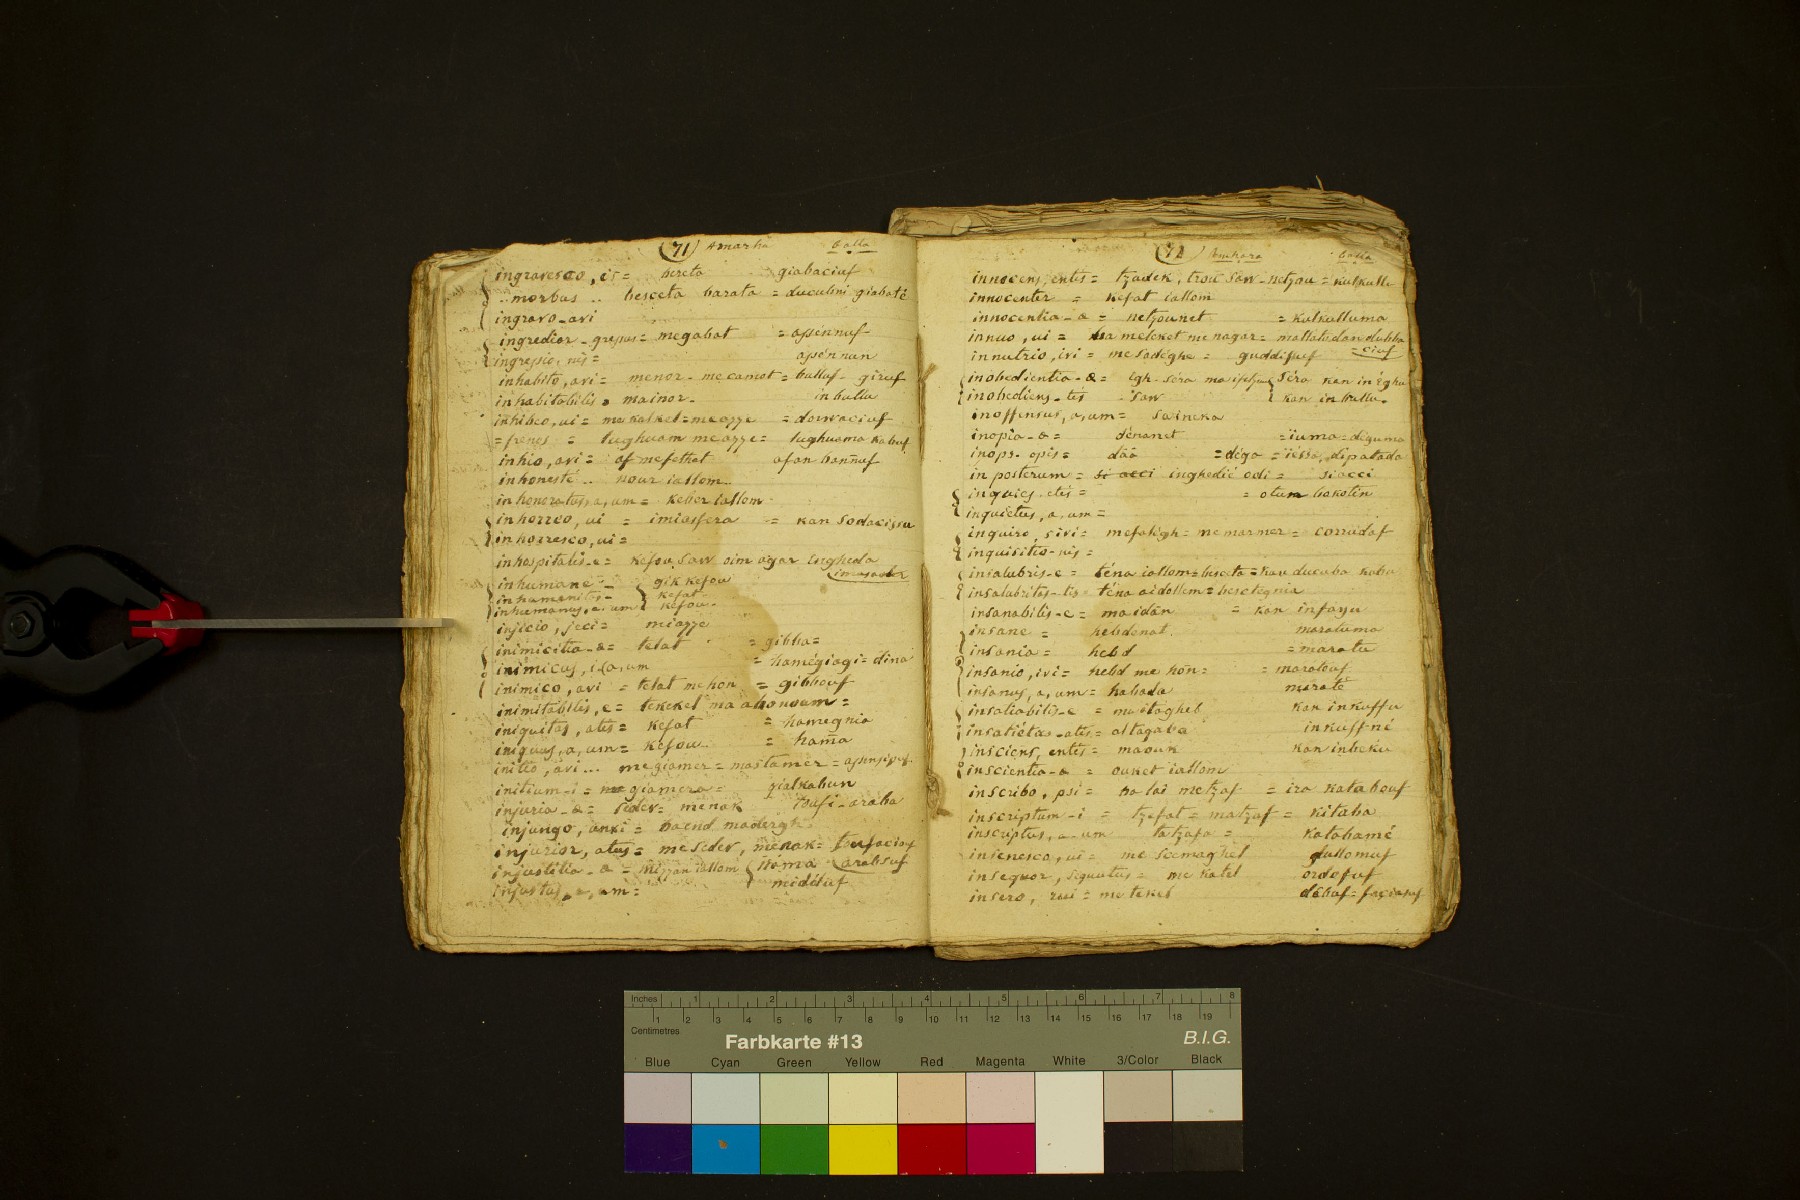 71 Amarha Galla
ingravesco, is = bereta giabaciuf
.. morbus .. besceta barata = ducubni giabaté
ingravo_avi
ingredior_gressus = megabat = assennuf
ingressio, nis = assennan
inhabito, avi = menor_mecamot = balluf_giruf
inhabitabilis = mainor_ inballu
inhibeo, ui = makalkel = meazze = dowaciuf
= frenos = lughuam meazze = lughuama kabuf
inhio, avi = af mefethat afan bannuf
inhonesté .. nour iallom..
inhonoratus, a, um = keber iallom
inhorreo, ui = imiasfera = kan sodacissu
inhorresco, ui =
inhospitalis_e = kefou saw oim agar Engheda
imasader
inhumane gik kefou
inhumanitas_ kefat
inhumanus, a, um kefou
injicio, jeci = miazze
inimicitia_æ = telat = gibba =
inimicus, i, a, um = hamégiagi = dina
inimico, avi = telat mehon = gibbouf
inimitabilis, e = tekekel ma
iniquitas, atis = kefat = hamegnia
iniquus, a, um = kefou_ = hama
initio, avi ... megiamer = mastamer =
initium_i = megiamera = gialkabun
injuria_æ = seder = menak Tufi_araba
injungo, anxi = baend maderghi
injurior, atus = meseder, menak =
injustitia_æ = mizzan iallom itima arabsuf
injustus, a, um = miditiuf
72 Amhara Galla
innocens, entis = tzadek, trou saw_netzou = kulkullu
innocenter = kefat iallom
innocentia_æ = netzounet = kulkulluma
innuo, ui = ba meleket menagar = mallatudan dubba
= ciuf
innutrio, ivi = mesadéghe = guddisuf
inobedientia_æ = Egh_séra séra kan in Eghu
inobediens_tis saw kan in ballu_
inoffensus, a, um = saineka
inopia_æ = dénanet = iuma = diguma
inops_opis = dáá = déga = iessa, dipatada
in posterum = si acci inghedié odi = siacci
inquies_etis = = otum bokotin
inquietus, a, um =
inquiro, sivi = mefalégh = memarmer = corrudaf
inquisitio_nis =
insalubris_e = téna iallom = besceta = kan ducuba kabu
insalubritas_tis = téna aidollem = besctegnia
insanabilis_e = maidán = kan infayu
insane = hebdenat. maratuma
insania = hebd = maratu
insanio, ivi = hebd mehon = = maratouf
insanus, a, um = habada maraté
insatiabilis_e = maitagheb kan inkuffu
insatiétas_atis = altagaba inkuff-né
insciens, entis = maouk kan inbeku
inscientia_æ = ouket iallom
inscribo, psi = ba lai metzaf = ira katabouf
inscriptum_i = tzefat = matzaf = kitaba
inscriptus, a_um tatzafa = katabamé
insenesco, ui = me scemaghel dullomuf
insequor, sequutus = me katel ordofuf
insero, rui = me tekel débuf = faciasuf
Inches 1 2 3 4 5 6 7 8
Centimetres 1 2 3 4 5 6 7 8 9 10 11 12 13 14 15 16 17 18 19
Farbkarte #13 B.I.G.
Blue Cyan Green Yellow Red Magenta White 3/Color Black